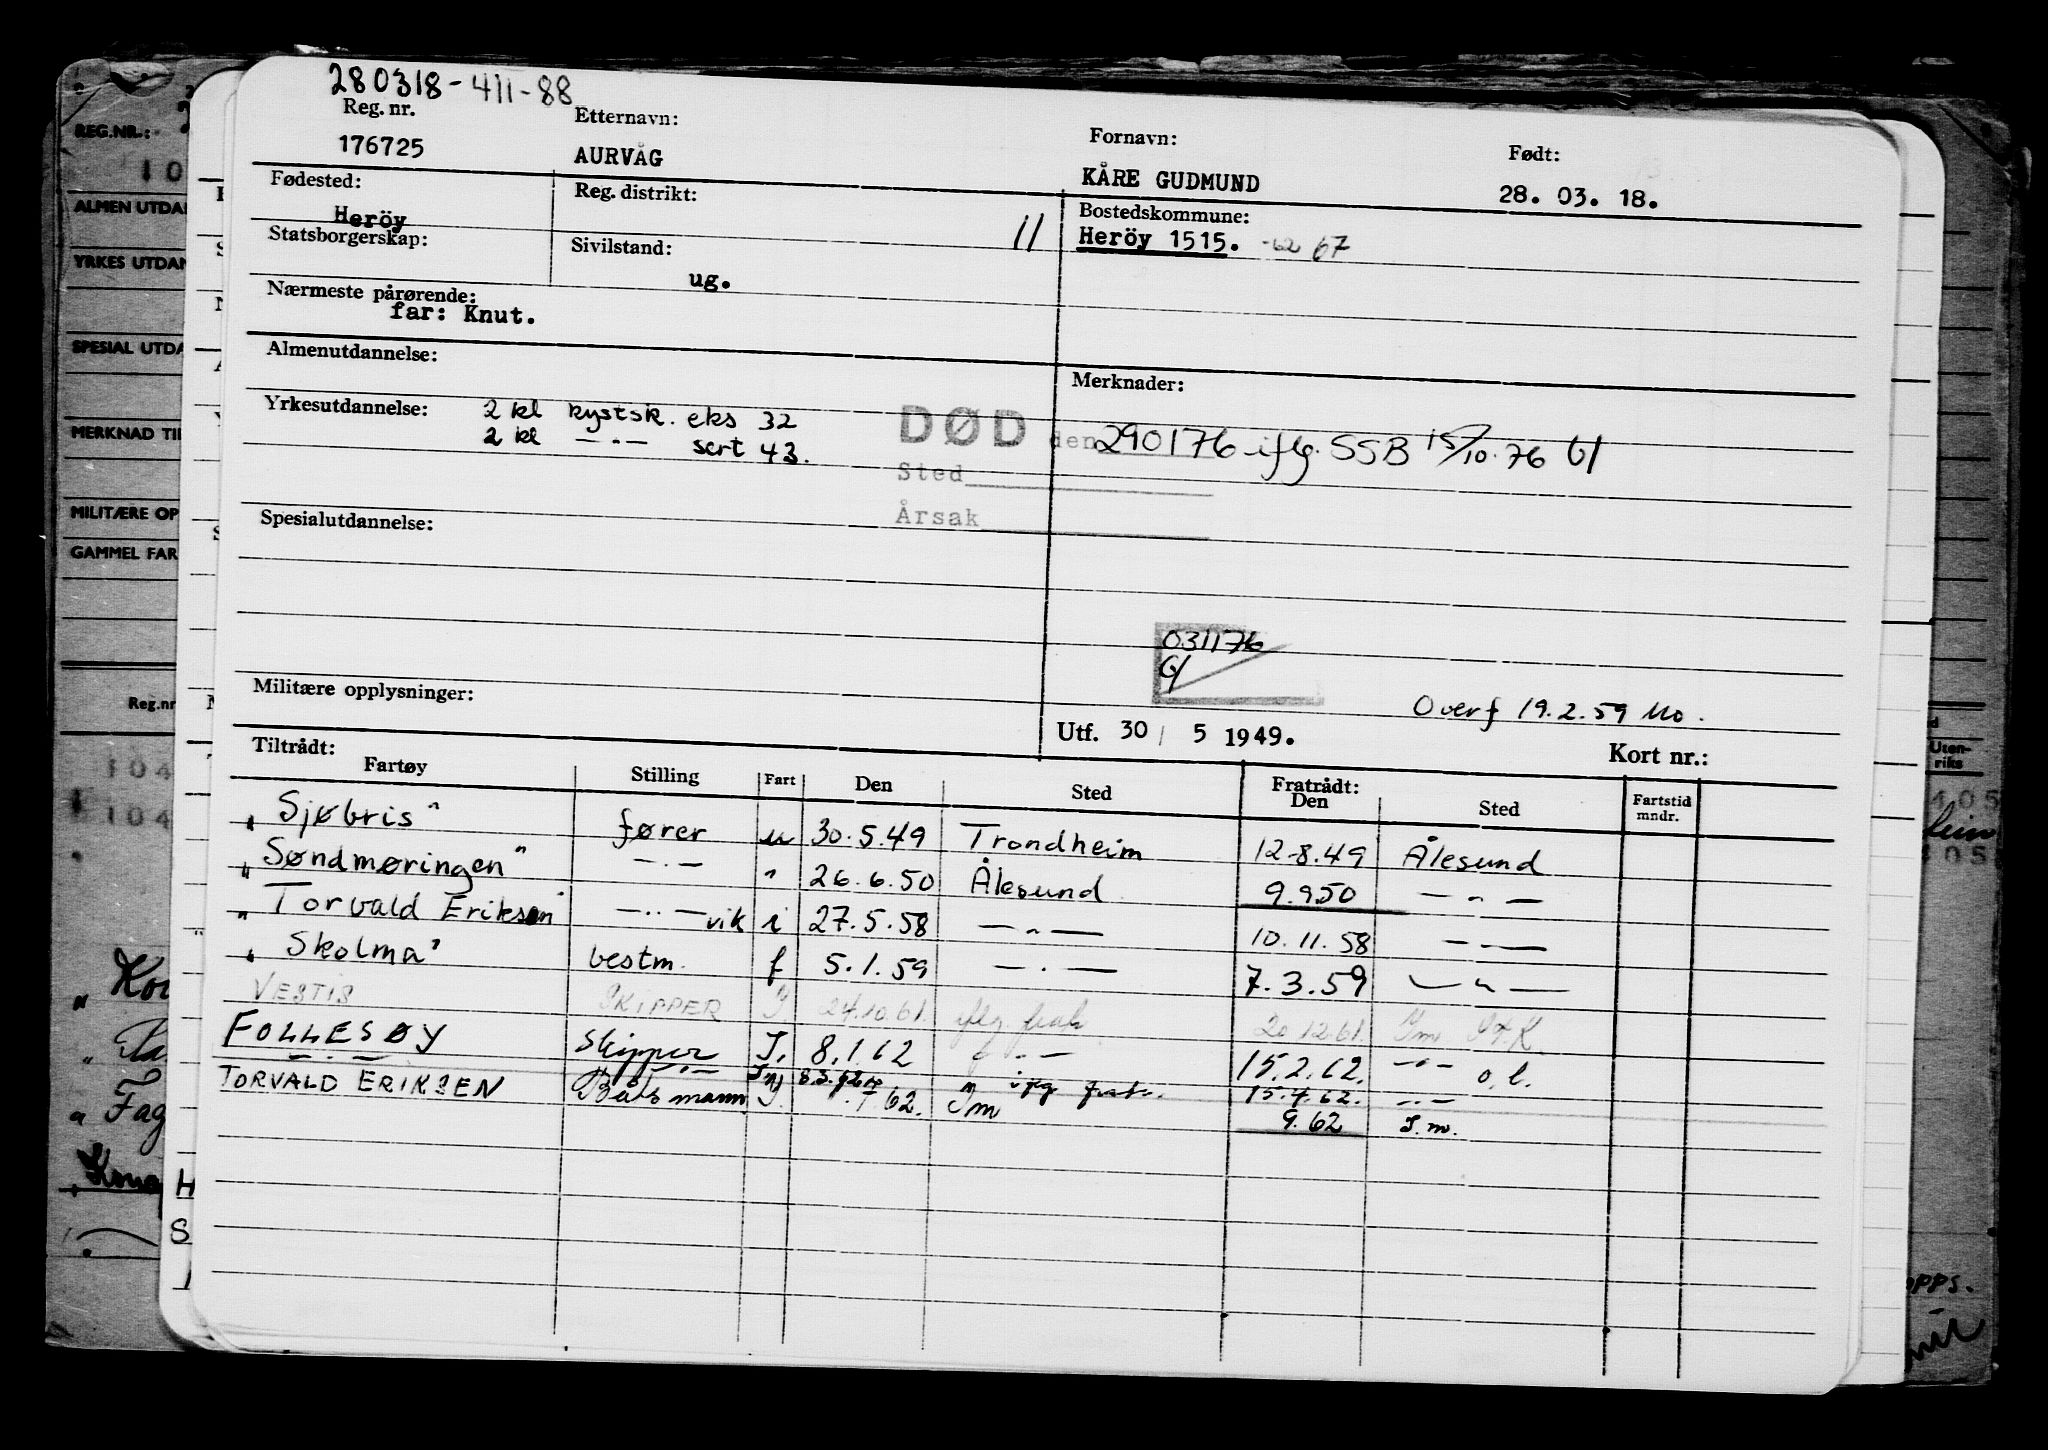 280318-411-88
Reg. nr. Etternavn: Fornavn: Født:
176725 AURVÅG KÅRE GUDMUND 28. 03. 18.
Fødested: Reg. distrikt: Bostedskommune:
Heröy 11 Heröy 1515. -62 67
Statsborgerskap: Sivilstand:
ug.
Nærmeste pårørende:
far: Knut.
Almenutdannelse: Merknader:
Yrkesutdannelse: 2 kl kystsk. eks 32
2 kl —·— sert 43.
DØD den 290176 iflg. SSB 15/10.76
Sted
Årsak
Spesialutdannelse:
031176
Militære opplysninger:
Overf 19.2.59 Mo.
Utf. 30 / 5 1949. Kort nr.:
Tiltrådt: Fratrådt:
Fartøy Stilling Fart Den Sted Den Sted Fartstid mndr.
"Sjøbris" fører u 30.5.49 Trondheim 12-8.49 Ålesund
"Søndmøringen" —·— " 26.6.50 Ålesund 9.9.50 — " —
"Torvald Eriksen" —··— vik i 27.5.58 — " — 10.11.58 — " —
"Skolma" bestm. f 5.1.59 — · — 7.3.59 — " —
VESTIS SKIPPER I. 24.10.61. iflg. frak 20.12.61. Im
FOLLESØY Skipper I. 8.1.62 — " — 15.2.62. — " — o.l.
—·— —·— 8.3.62 iflg 15.4.62. —··—
TORVALD ERIKSEN Båtsmann I. 62. Im 9.62 I.m.
REG.NR.:
10
ALMEN UTDAN
YRKES UTDAN
SPESIAL UTDA
MERKNAD TIL
MILITÆRE OP
GAMMEL FAR
Reg.nr
104
104
Uten-
riks
405
405
"Fag
H
S
OPPS.